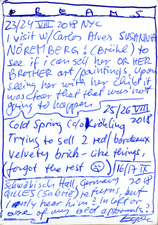 DREAMS
23/24 VIII 2018 NYC
I visit w/ Carlos Alves SUSANNA
NÖRETBERG (Brühl) to
see if i can sell her OR HER
BROTHER art/paintings. Upon
seeing her with her child it
was clear that that was not
going to happen. 25/26 VIII
Cold Spring c/o Kröhling 2018
Trying to sell 2 red/bordeaux
velvety brick-like things,
forgot the rest 16/17 IX
Schwäbisch Hall, Germany 2018
GILLES (Sabrié) returns, but i
only hear him? in left or
one of my old aparments?